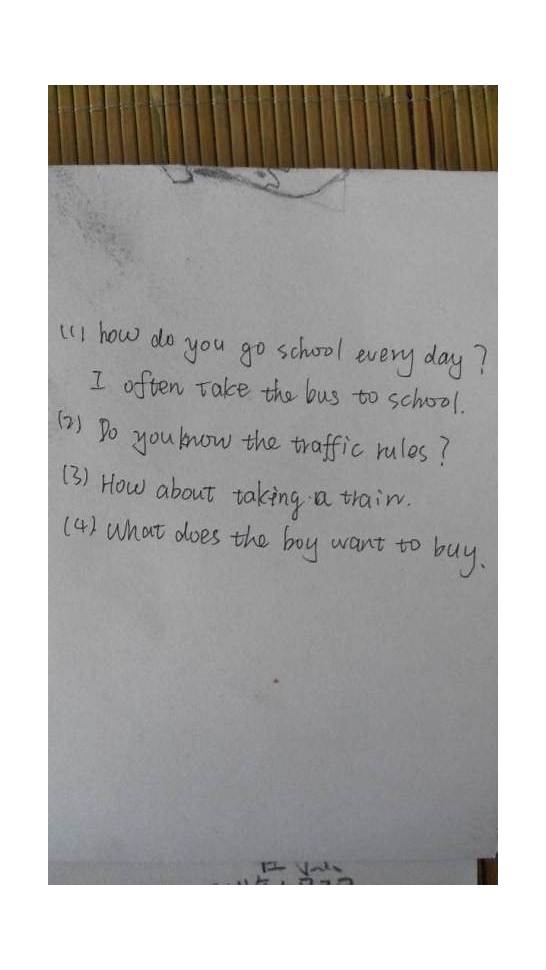 (1) how do you go school every day?
I often Take the bus to school.
(2) Do you know the traffic rules?
(3) How about taking a train.
(4) What does the boy want to buy.